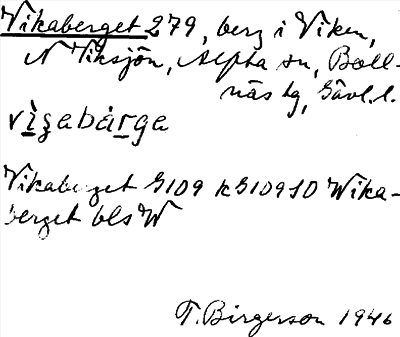 Vikaberget 279, berg i Viken,
N Viksjön, Alpha sn, Boll-
näs tg, Gävl. l.
vìʒabàrga
Vikaberget G109 kG109SO Wika-
berget bls W
T. Birgerson 1946